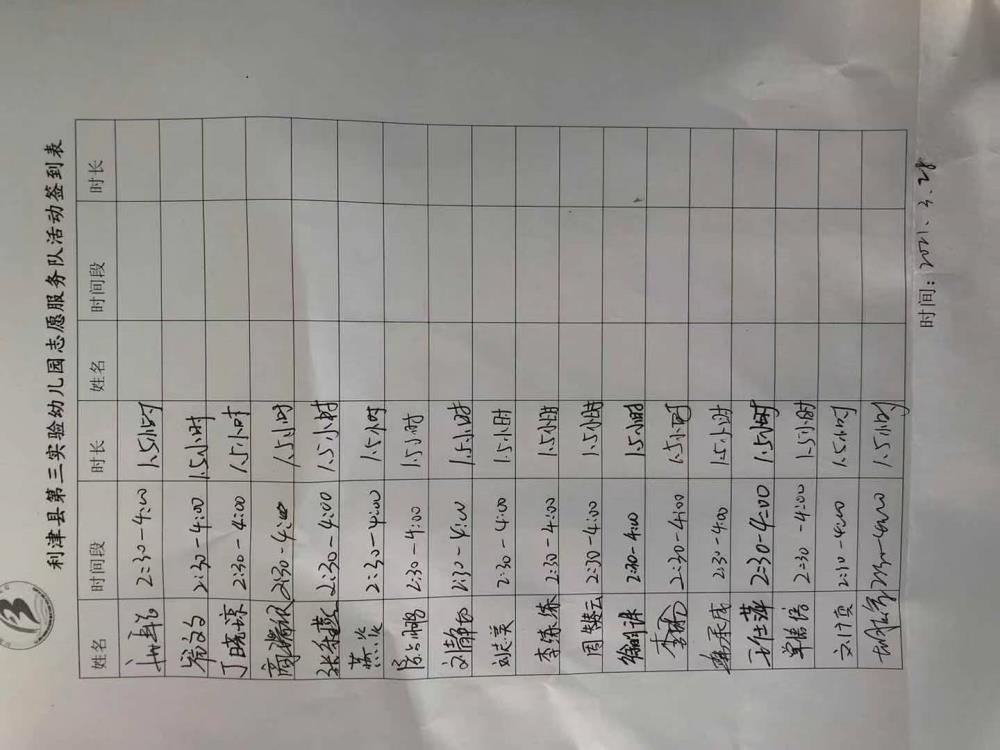 利津县第三实验幼儿园志愿服务队活动签到表
姓名 时间段 时长 姓名 时间段 时长
2:30-4:00 1.5小时
2:30-4:00 1.5小时
丁晓琼 2:30-4:00 1.5小时
2:30-4:00 1.5小时
张春燕 2:30-4:00 1.5小时
2:30-4:00 1.5小时
2:30-4:00 1.5小时
刘静 2:30-4:00 1.5小时
刘志英 2:30-4:00 1.5小时
李练练 2:30-4:00 1.5小时
周银云 2:30-4:00 1.5小时
徐明洙 2:30-4:00 1.5小时
李楠 2:30-4:00 1.5小时
2:30-4:00 1.5小时
王仕萍 2:30-4:00 1.5小时
单倩倩 2:30-4:00 1.5小时
2:30-4:00 1.5小时
2:30-4:00 1.5小时
时间：2021.3.28